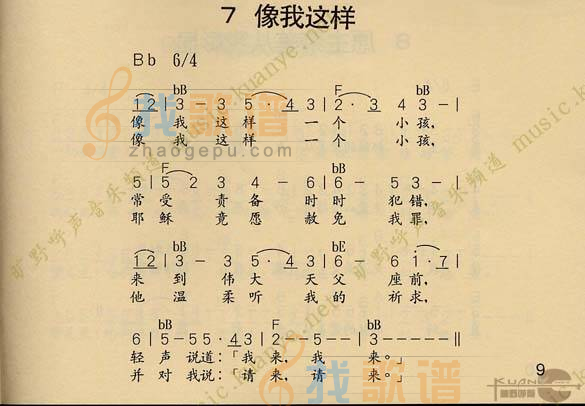 7 像我这样
Bb 6/4
bB F bB
12 | 3 - 3 5 · 43 | 2 · 3 4 3 -
像 我 这 样 一 个 小 孩,
像 我 这 样 一 个 小 孩,
F bB
5 | 5 2 3 - 6 - | 6 - 5 3 -
常 受 责 备 时 时 犯 错,
耶 稣 竟 愿 赦 免 我 罪,
bB bE F
12 | 3 - 3 5 · 43 | 6 - 6 1 · 7 |
来 到 伟 大 天 父 座 前,
他 温 柔 听 我 的 祈 求,
bB F bB
6 | 5 - 55 5 · 43 | 2 -- 5 -- | 3 ----- ||
轻 声 说道:「我 来, 我 来。」
并 对 我说:「请 来, 请 来。」
9
我歌谱
zhaogepu.com
旷野呼声音乐频道 music.kuanye.net